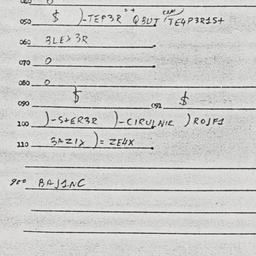 050 $ )-TEP3R Q3UT TE4P3R1S+
060 3LEX3R
070 0
080 0
090 $ 091 $
100 )-S+ER3R )-CIRULNIK )ROJF1
110 3AZ1X )= ZE4X
900 BAJ1NC